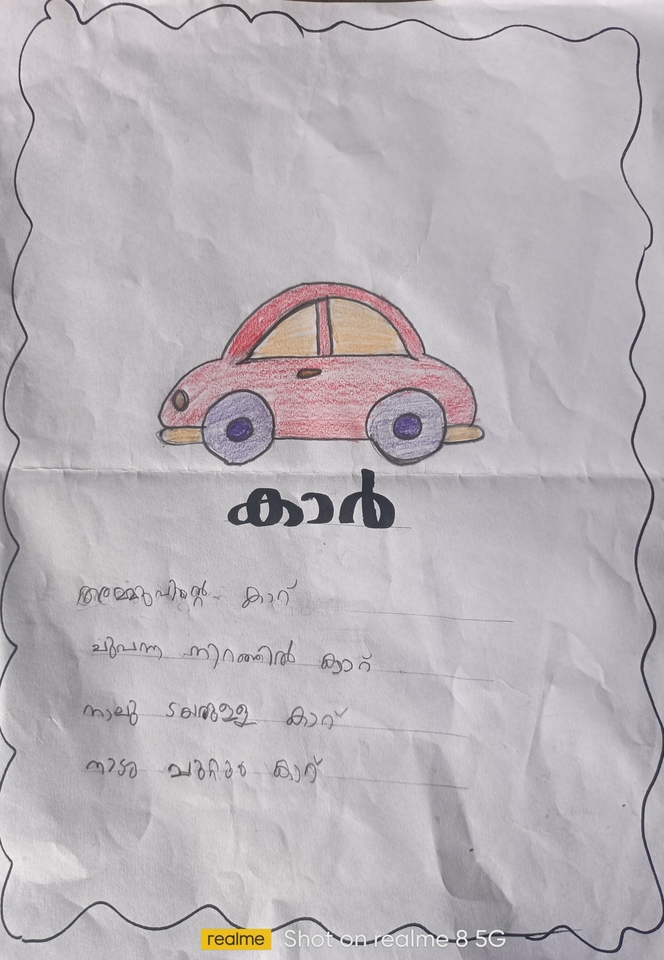 കാർ
അമ്മുവിന്റെ കാറ്
ചുവന്ന നിറത്തിൽ കാറ്
നാലു ടയറുള്ള കാറ്
നാടു ചുറ്റും കാറ്
realme Shot on realme 8 5G